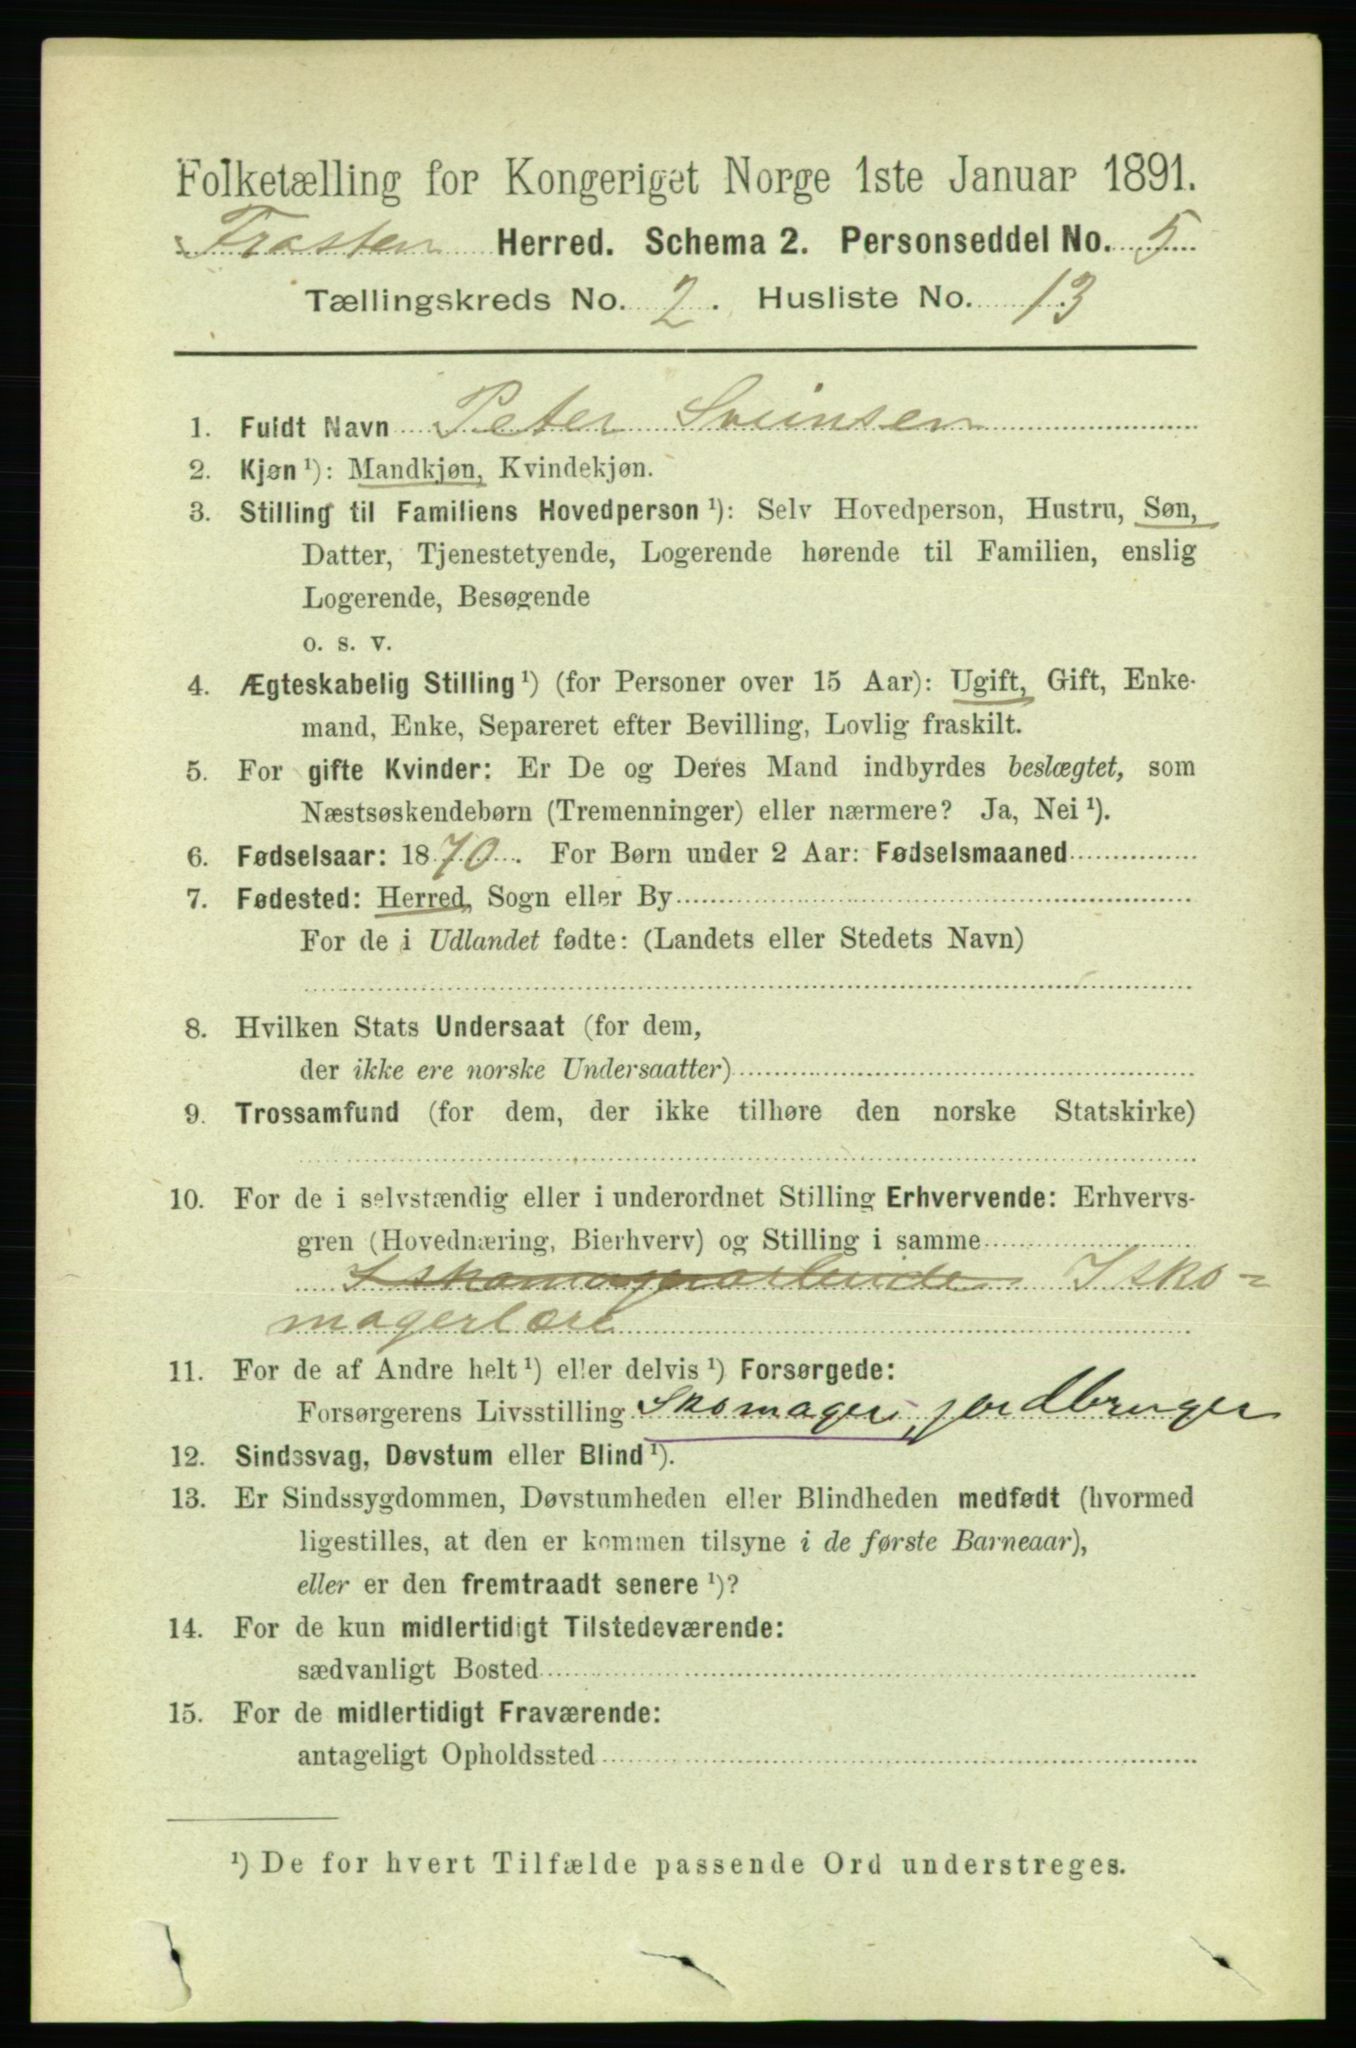 Folketælling for Kongeriget Norge 1ste Januar 1891.
Trasten Herred. Schema 2. Personseddel No. 5
Tællingskreds No. 2. Husliste No. 13
1. Fuldt Navn Peter Sveinsen
2. Kjøn ¹): Mandkjøn, Kvindekjøn.
3. Stilling til Familiens Hovedperson ¹): Selv Hovedperson, Hustru, Søn,
Datter, Tjenestetyende, Logerende hørende til Familien, enslig
Logerende, Besøgende
o. s. v.
4. Ægteskabelig Stilling ¹) (for Personer over 15 Aar): Ugift, Gift, Enke-
mand, Enke, Separeret efter Bevilling, Lovlig fraskilt.
5. For gifte Kvinder: Er De og Deres Mand indbyrdes beslægtet, som
Næstsøskendebørn (Tremenninger) eller nærmere? Ja, Nei ¹).
6. Fødselsaar: 1870. For Børn under 2 Aar: Fødselsmaaned
7. Fødested: Herred, Sogn eller By
For de i Udlandet fødte: (Landets eller Stedets Navn)
8. Hvilken Stats Undersaat (for dem,
der ikke ere norske Undersaatter)
9. Trossamfund (for dem, der ikke tilhøre den norske Statskirke)
10. For de i selvstændig eller i underordnet Stilling Erhvervende: Erhvervs-
gren (Hovednæring, Bierhverv) og Stilling i samme
I skomagerarbeide I sko-
magerlære
11. For de af Andre helt ¹) eller delvis ¹) Forsørgede:
Forsørgerens Livsstilling Skomager, jordbruger
12. Sindssvag, Døvstum eller Blind ¹).
13. Er Sindssygdommen, Døvstumheden eller Blindheden medfødt (hvormed
ligestilles, at den er kommen tilsyne i de første Barneaar),
eller er den fremtraadt senere ¹)?
14. For de kun midlertidigt Tilstedeværende:
sædvanligt Bosted
15. For de midlertidigt Fraværende:
antageligt Opholdssted
¹) De for hvert Tilfælde passende Ord understreges.